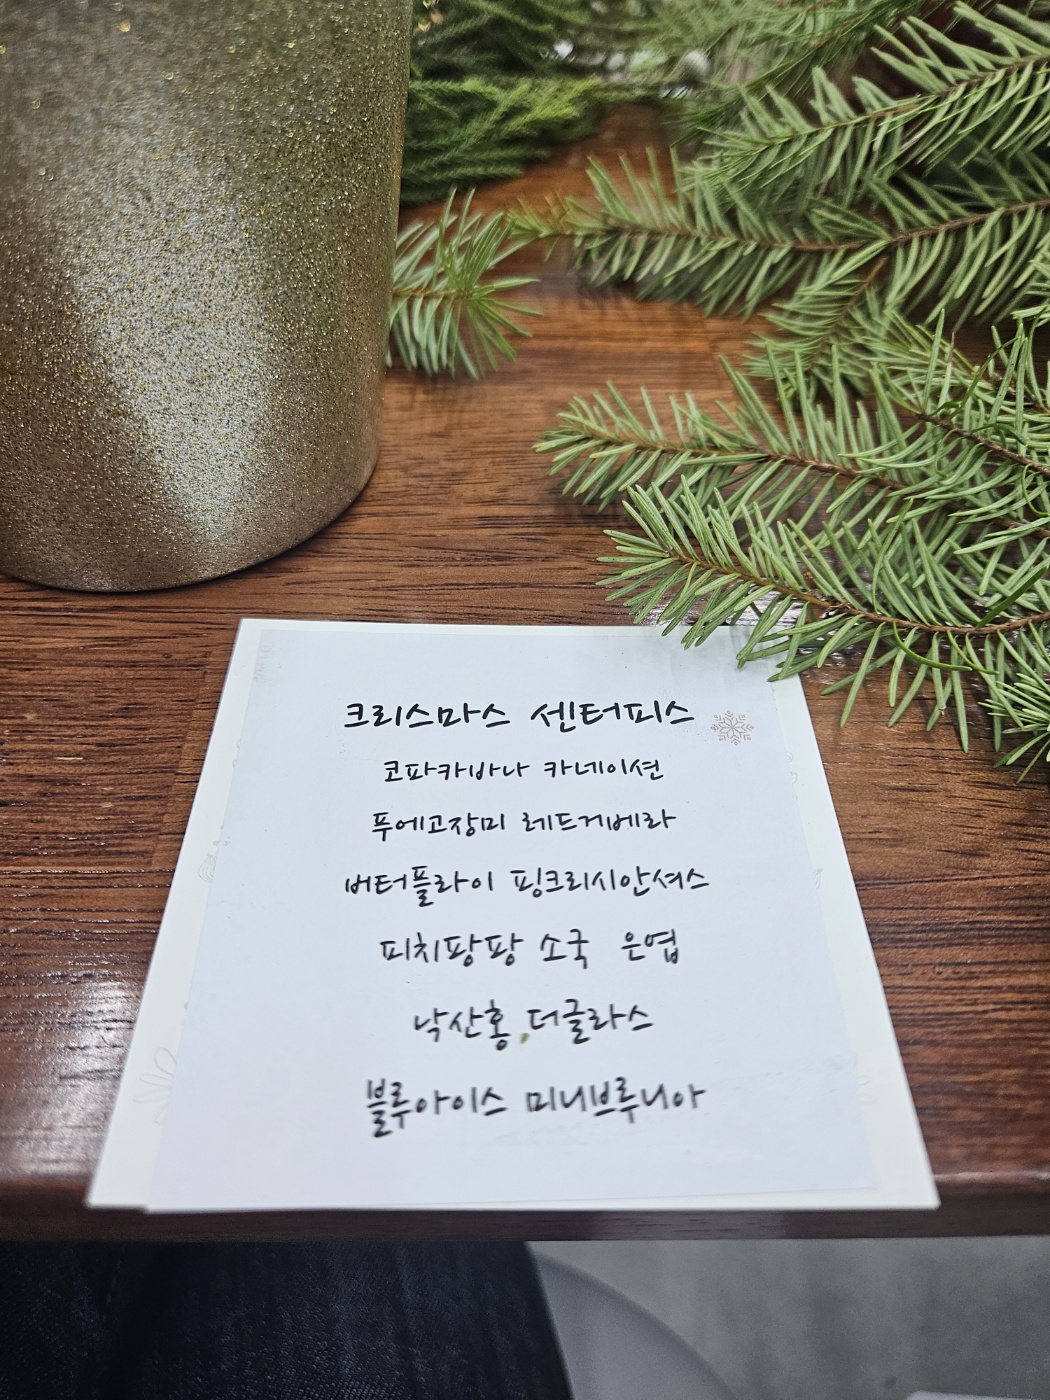 크리스마스 센터피스
코파카바나 카네이션
푸에고장미 레드거베라
버터플라이 핑크리시안셔스
피치팡팡 소국 은엽
낙산홍, 더글라스
블루아이스 미니브루니아